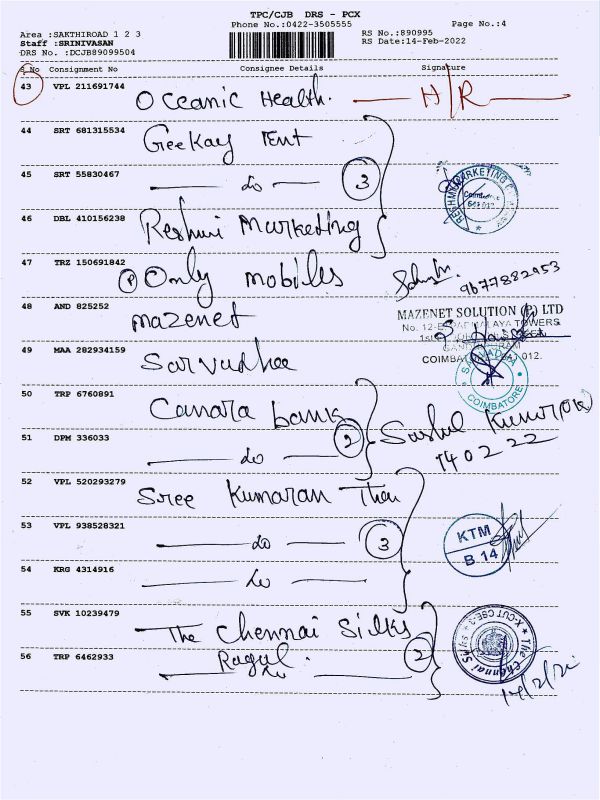 TPC/CJB DRS - PCX
Phone No.:0422-3505555
Page No.:4
Area :SAKTHIROAD 1 2 3
RS No.:890995
Staff :SRINIVASAN
RS Date:14-Feb-2022
DRS No. :DCJB89099504
S No Consignment No Consignee Details Signature
43 VPL 211691744 Oceanic Health. H/R
44 SRT 681315534 Geekay Tent
45 SRT 55830467 do 3
46 DBL 410156238 Reshmi Marketing
47 TRZ 150691842 (P) Only mobiles 9677882953
48 AND 825252 mazenet
MAZENET SOLUTION (P) LTD
COIMBATORE - 641 012.
49 MAA 282934159 Sarvadhaa
COIMBATORE
50 TRP 6760891 Canara bank
51 DPM 336033 do 2
14 02 22
52 VPL 520293279 Sree Kumaran Than
53 VPL 938528321 do 3
KTM
B 14
54 KRG 4314916 do
55 SVK 10239479 The Chennai Silks
56 TRP 6462933 Ragul. do 2